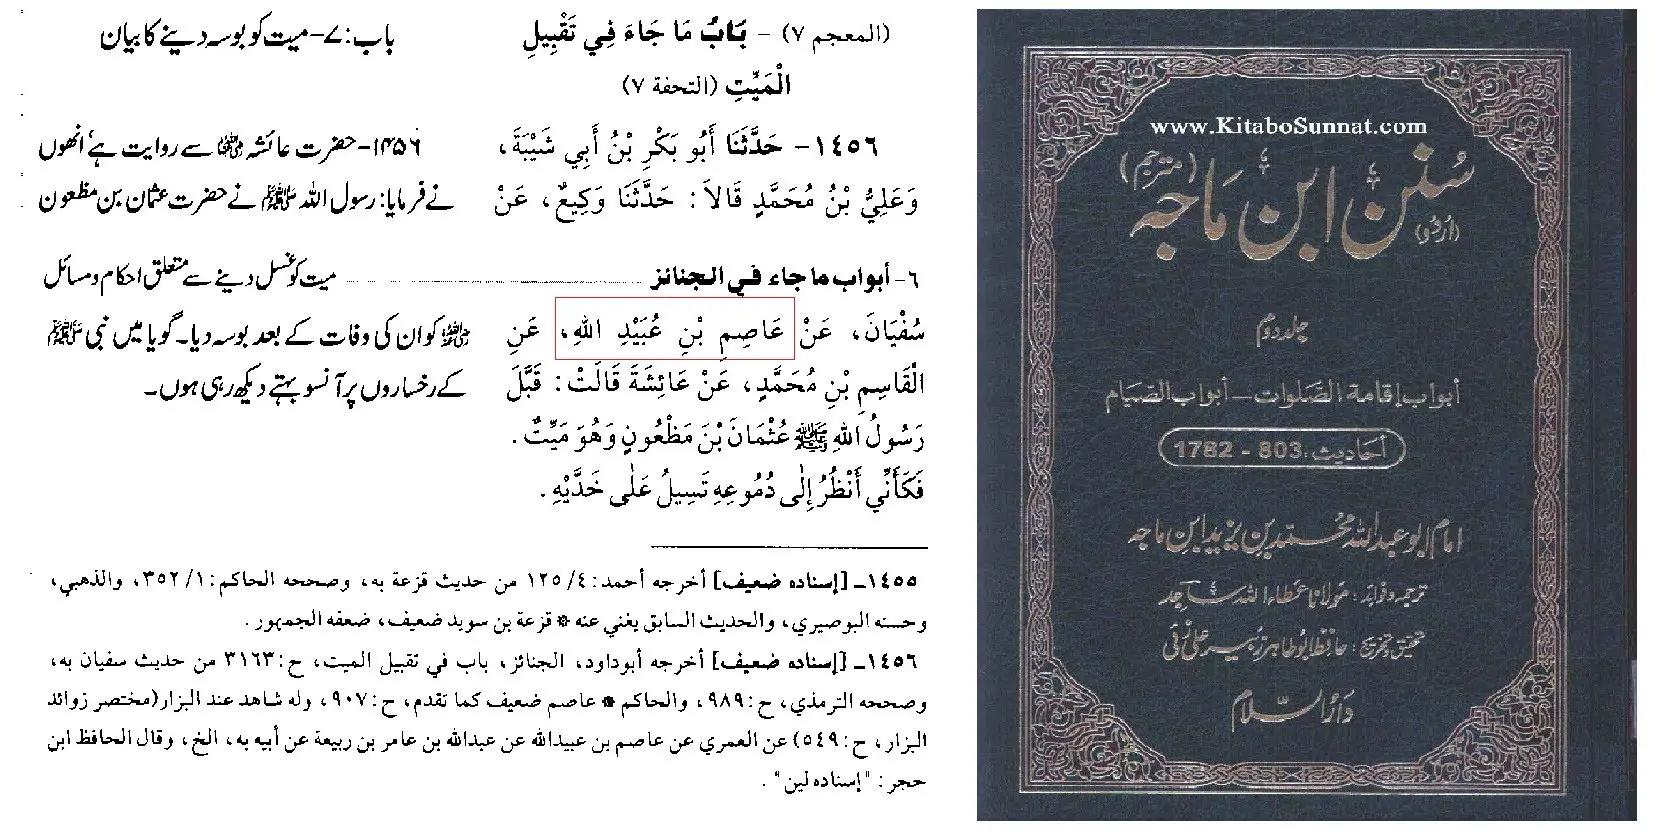 (المعجم ٧) - بَابُ مَا جَاءَ فِي تَقْبِيلِ
الْمَيِّتِ (التحفة ٧)
باب: ۷- میت کو بوسہ دینے کا بیان
١٤٥٦- حَدَّثَنَا أَبُو بَكْرِ بْنُ أَبِي شَيْبَةَ،
وَعَلِيُّ بْنُ مُحَمَّدٍ قَالاَ: حَدَّثَنَا وَكِيعٌ، عَنْ
۱۴۵۶- حضرت عائشہ ؓ سے روایت ہے، انھوں
نے فرمایا: رسول اللہ ﷺ نے حضرت عثمان بن مظعون
٦- أبواب ما جاء في الجنائز ... میت کو غسل دینے سے متعلق احکام و مسائل
سُفْيَانَ، عَنْ عَاصِمِ بْنِ عُبَيْدِ اللهِ، عَنِ
الْقَاسِمِ بْنِ مُحَمَّدٍ، عَنْ عَائِشَةَ قَالَتْ: قَبَّلَ
رَسُولُ اللهِ ﷺ عُثْمَانَ بْنَ مَظْعُونٍ وَهُوَ مَيِّتٌ.
فَكَأَنِّي أَنْظُرُ إِلٰى دُمُوعِهِ تَسِيلُ عَلٰى خَدَّيْهِ.
ؓ کو ان کی وفات کے بعد بوسہ دیا۔ گویا میں نبی ﷺ
کے رخساروں پر آنسو بہتے دیکھ رہی ہوں۔
١٤٥٥ـ [إسناده ضعيف] أخرجه أحمد: ٤/ ١٢٥ من حديث قزعة به، وصححه الحاكم: ١/ ٣٥٢، والذهبي،
وحسنه البوصيري، والحديث السابق يغني عنه * قزعة بن سويد ضعيف، ضعفه الجمهور.
١٤٥٦ـ [إسناده ضعيف] أخرجه أبوداود، الجنائز، باب في تقبيل الميت، ح: ٣١٦٣ من حديث سفيان به،
وصححه الترمذي، ح: ٩٨٩، والحاكم * عاصم ضعيف كما تقدم، ح: ٩٠٧، وله شاهد عند البزار(مختصر زوائد
البزار، ح: ٥٤٩) عن العمري عن عاصم بن عبيدالله عن عبدالله بن عامر بن ربيعة عن أبيه به، الخ، وقال الحافظ ابن
حجر: "إسناده لين".
www.KitaboSunnat.com
سنن ابن ماجہ (مترجم)
(اردو)
جلد دوم
أبواب إقامة الصلوات - أبواب الصيام
أحاديث: 803 - 1782
امام ابو عبداللہ محمد بن یزید ابن ماجہ
ترجمہ و فوائد: مولانا عطاء اللہ ساجد
تحقیق و تخریج: حافظ ابو طاہر زبیر علی زئی
دارالسلام